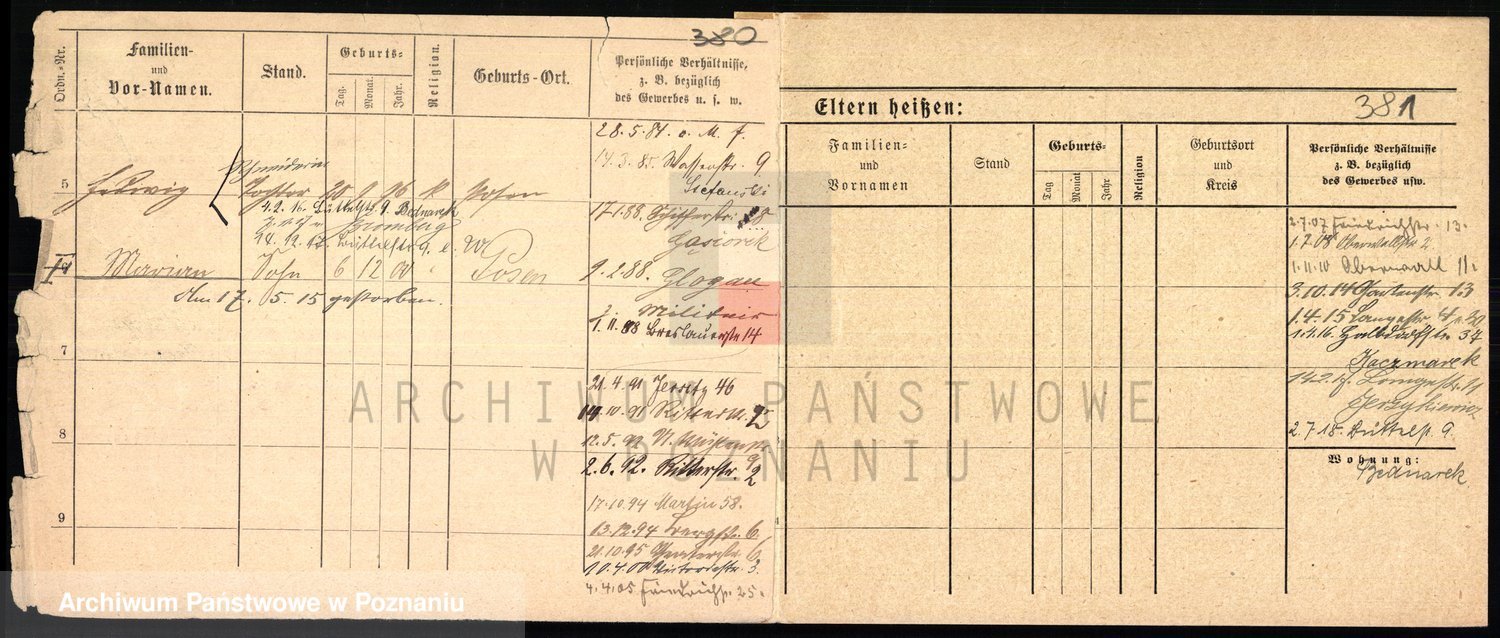 380
Ordn.-Nr.
Familien-
und
Vor-Namen.
Stand.
Geburts-
Tag.
Monat.
Jahr.
Religion.
Geburts-Ort.
Persönliche Verhältnisse,
z. B. bezüglich
des Gewerbes u. s. w.
5
Hedwig
Schneiderin
Tochter
9 96
Posen
4.2.16. Büttelstr 9. Bednarek
Bromberg
14.12.17 Büttelstr 9.
Marian Sohn 6 12 00 " Posen
Am 17. 5. 15 gestorben.
7
8
9
28.5.84. o. M. f.
14.3.85. Wasserstr. 9
Stefanski
17.1.88. Schifferstr. 8
Gąsiorek
9.2.88. Glogau
z. Militair
1.11.88 Breslauerstr 14
21.4.91 Jersitz 46
10.91 Ritterstr.
12.5.92
2.6.92. Ritterstr. 2
17.10.94 Martin 58.
13.12.94 Bergstr. 6.
21.10.95 6
10.4.00 Victoriastr. 3.
4.4.05 Friedrichstr. 25.
381
Eltern heißen:
Familien-
und
Vornamen
Stand
Geburts-
Tag
Monat
Jahr
Religion
Geburtsort
und
Kreis
Persönliche Verhältnisse
z. B. bezüglich
des Gewerbes usw.
2.7.07 Friedrichstr. 13.
1.7.08 Oberwallstr 2.
1.11.10 Oberwall 11.
3.10.14 Gartenstr 13
1.4.15 Langestr 4
1.4.16. Halbdorfstr 37
Kaczmarek
Langestr.
Jerzykiewicz
2.7.18. Büttelstr. 9.
Wohnung:
Bednarek
ARCHIWUM PAŃSTWOWE
W POZNANIU
Archiwum Państwowe w Poznaniu